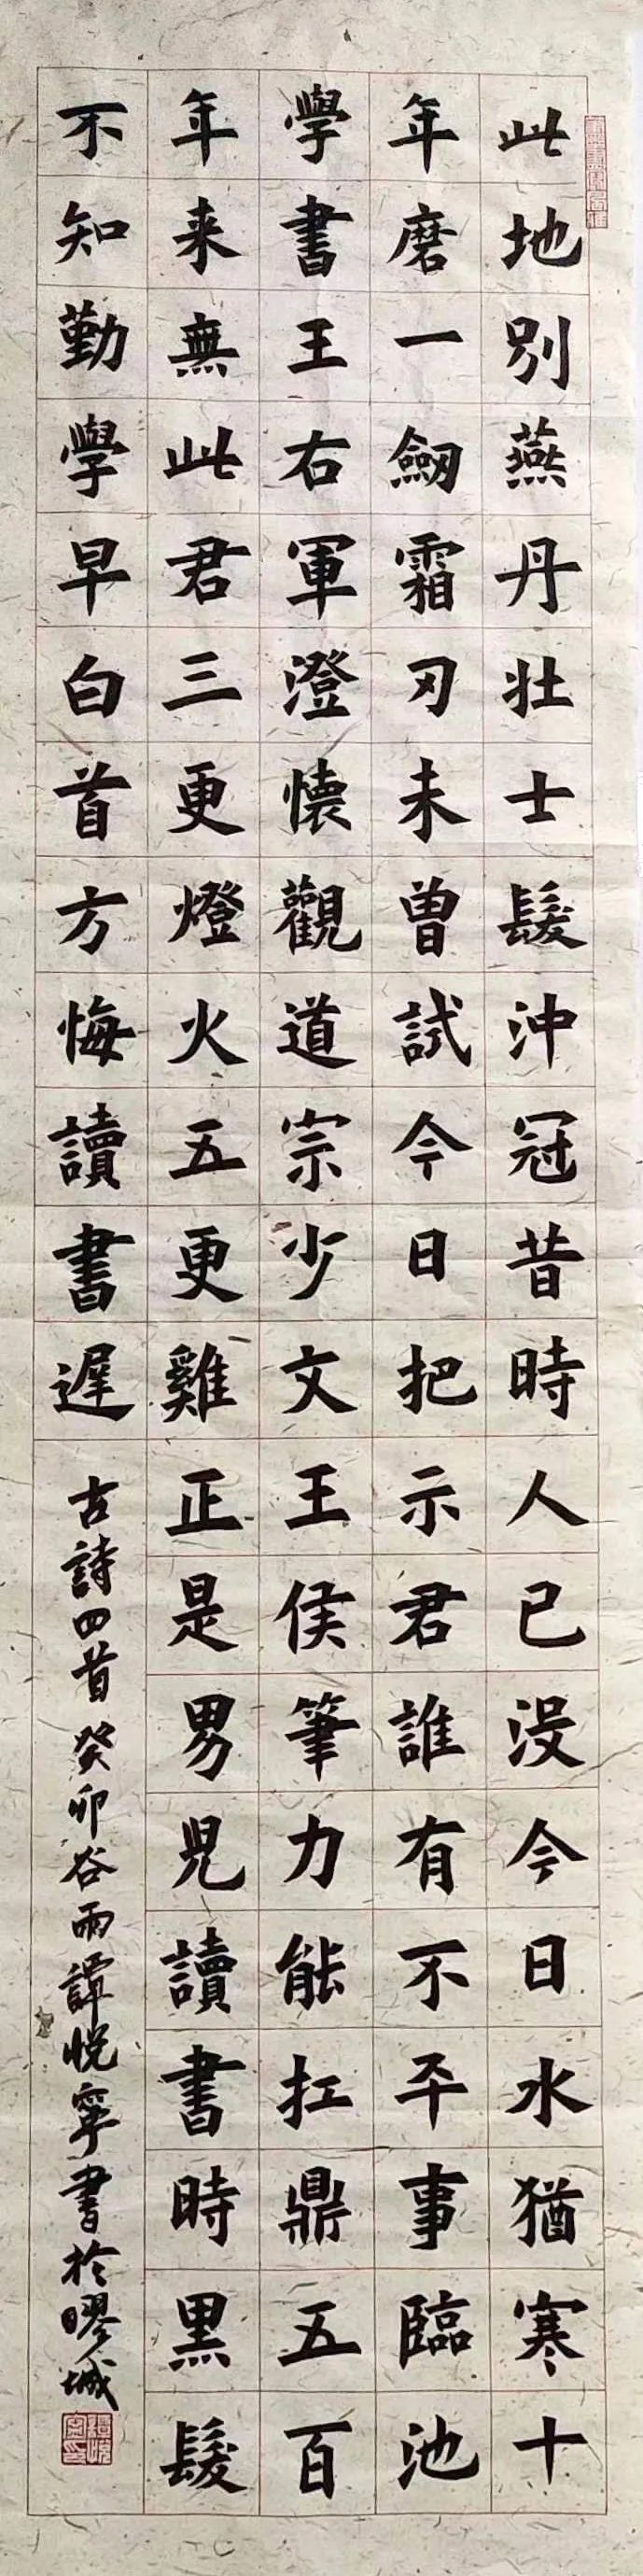 此地別燕丹壮士髮沖冠昔時人已没今日水猶寒十
年磨一劒霜刃未曾試今日把示君誰有不平事臨池
學書王右軍澄懷觀道宗少文王侯筆力能扛鼎五百
年来無此君三更燈火五更雞正是男児讀書時黑髮
不知勤學早白首方悔讀書遲
古詩四首 癸卯谷雨譚悦寧書於曖城